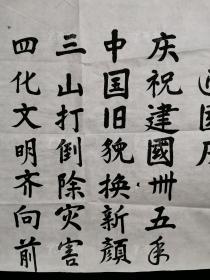 国庆
庆祝建國卅五年
中国旧貌換新顔
三山打倒除灾害
四化文明齐向前